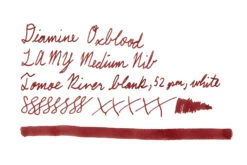 Diamine Oxblood
LAMY Medium Nib
Tomoe River blank, 52 gsm, white